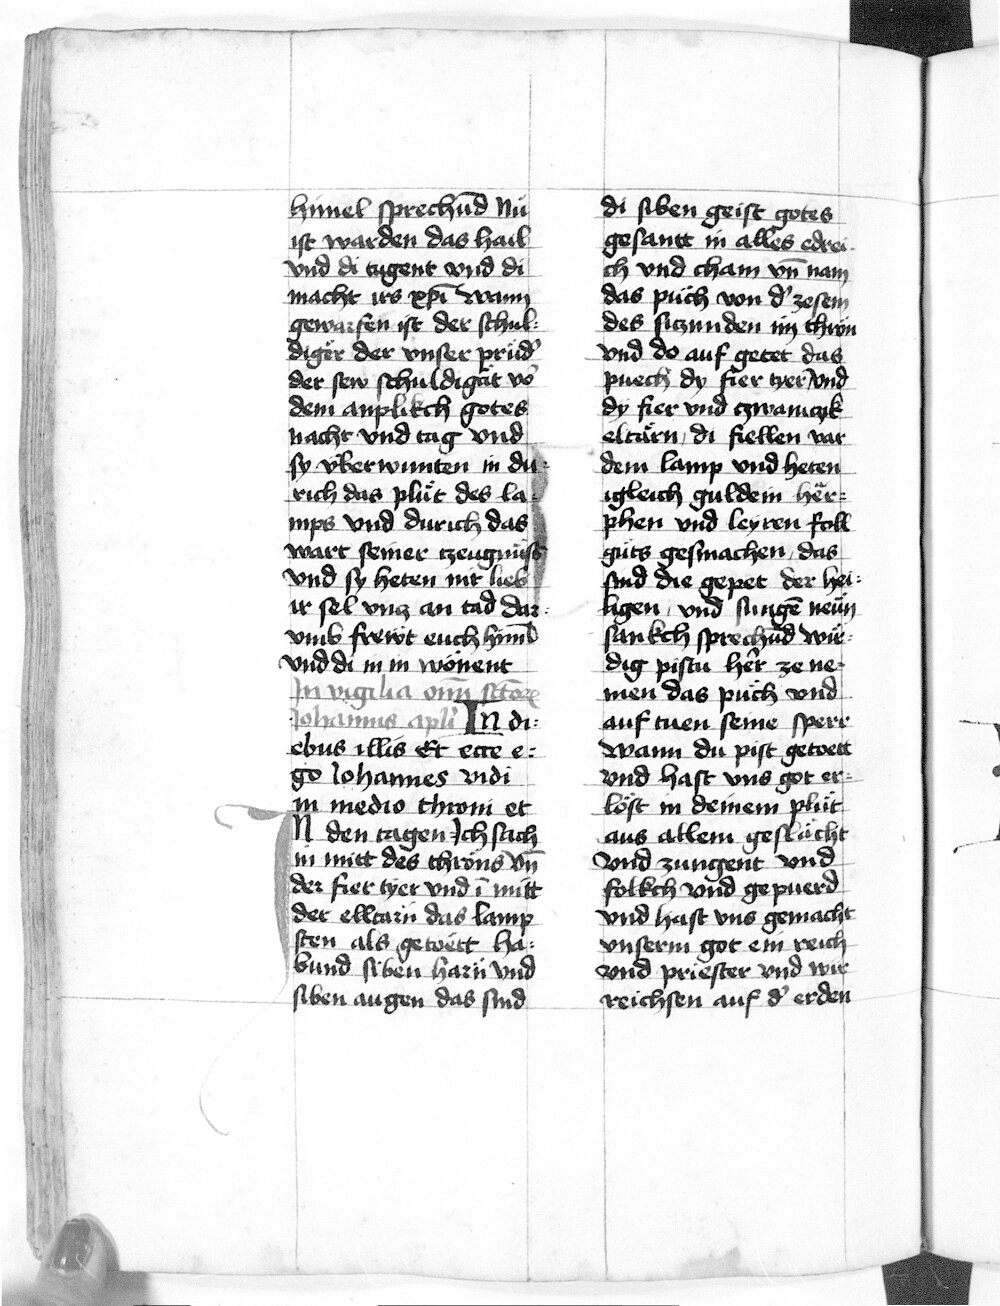 himel sprechūd Nu
ist warden das hail
vnd di tugent vnd di
macht irs xp̄i wann
gewarfen ist der schul-
diger der vnser prüd'
der sew schuldigat vō
dem anplikch gotes
nacht vnd tag vnd
sy vberwunten in du-
rich das plut des la-
mps vnd durich das
wart seiner tzeugnüss
vnd sy heten nit lieb
ir sel vncz an tad dar-
vmb frewt euch himl
vnd di in in wonent
In vigilia om̄ sctorꝝ
Johannis apli In di-
ebus illis Et ecce e-
go Johannes vidi
in medio throni et
IN den tagen Ich sach
in mitt des throns vn̄
der fier tyer vnd ī mitt
der elltarn das lamp
sten als getoett ha-
bund siben harn vnd
siben augen das sind
di siben geist gotes
gesantt in alles edrei-
ch vnd cham vn̄ nam
das puch von d' zesem
des siczunden im thron
vnd do auf getet das
puech dy fier tyer vnd
dy fier vnd czwainczk
eltarn di fiellen var
dem lamp vnd heten
igleich guldein her-
phen vnd leyren foll
guts gesmachen das
sind die gepet der hei-
ligen vnd sungē neun
sankch sprechūd wir-
dig pistu her ze ne-
men das puch vnd
auf tuen seine sperr
wann du pist getoett
vnd hast vns got er-
löst in deinem plut
aus allem geslächt
vnd zungent vnd
folkch vnd gepuerd
vnd hast vns gemacht
vnserm got ein reich
vnd priester vnd wir
reichsen auf d' erden